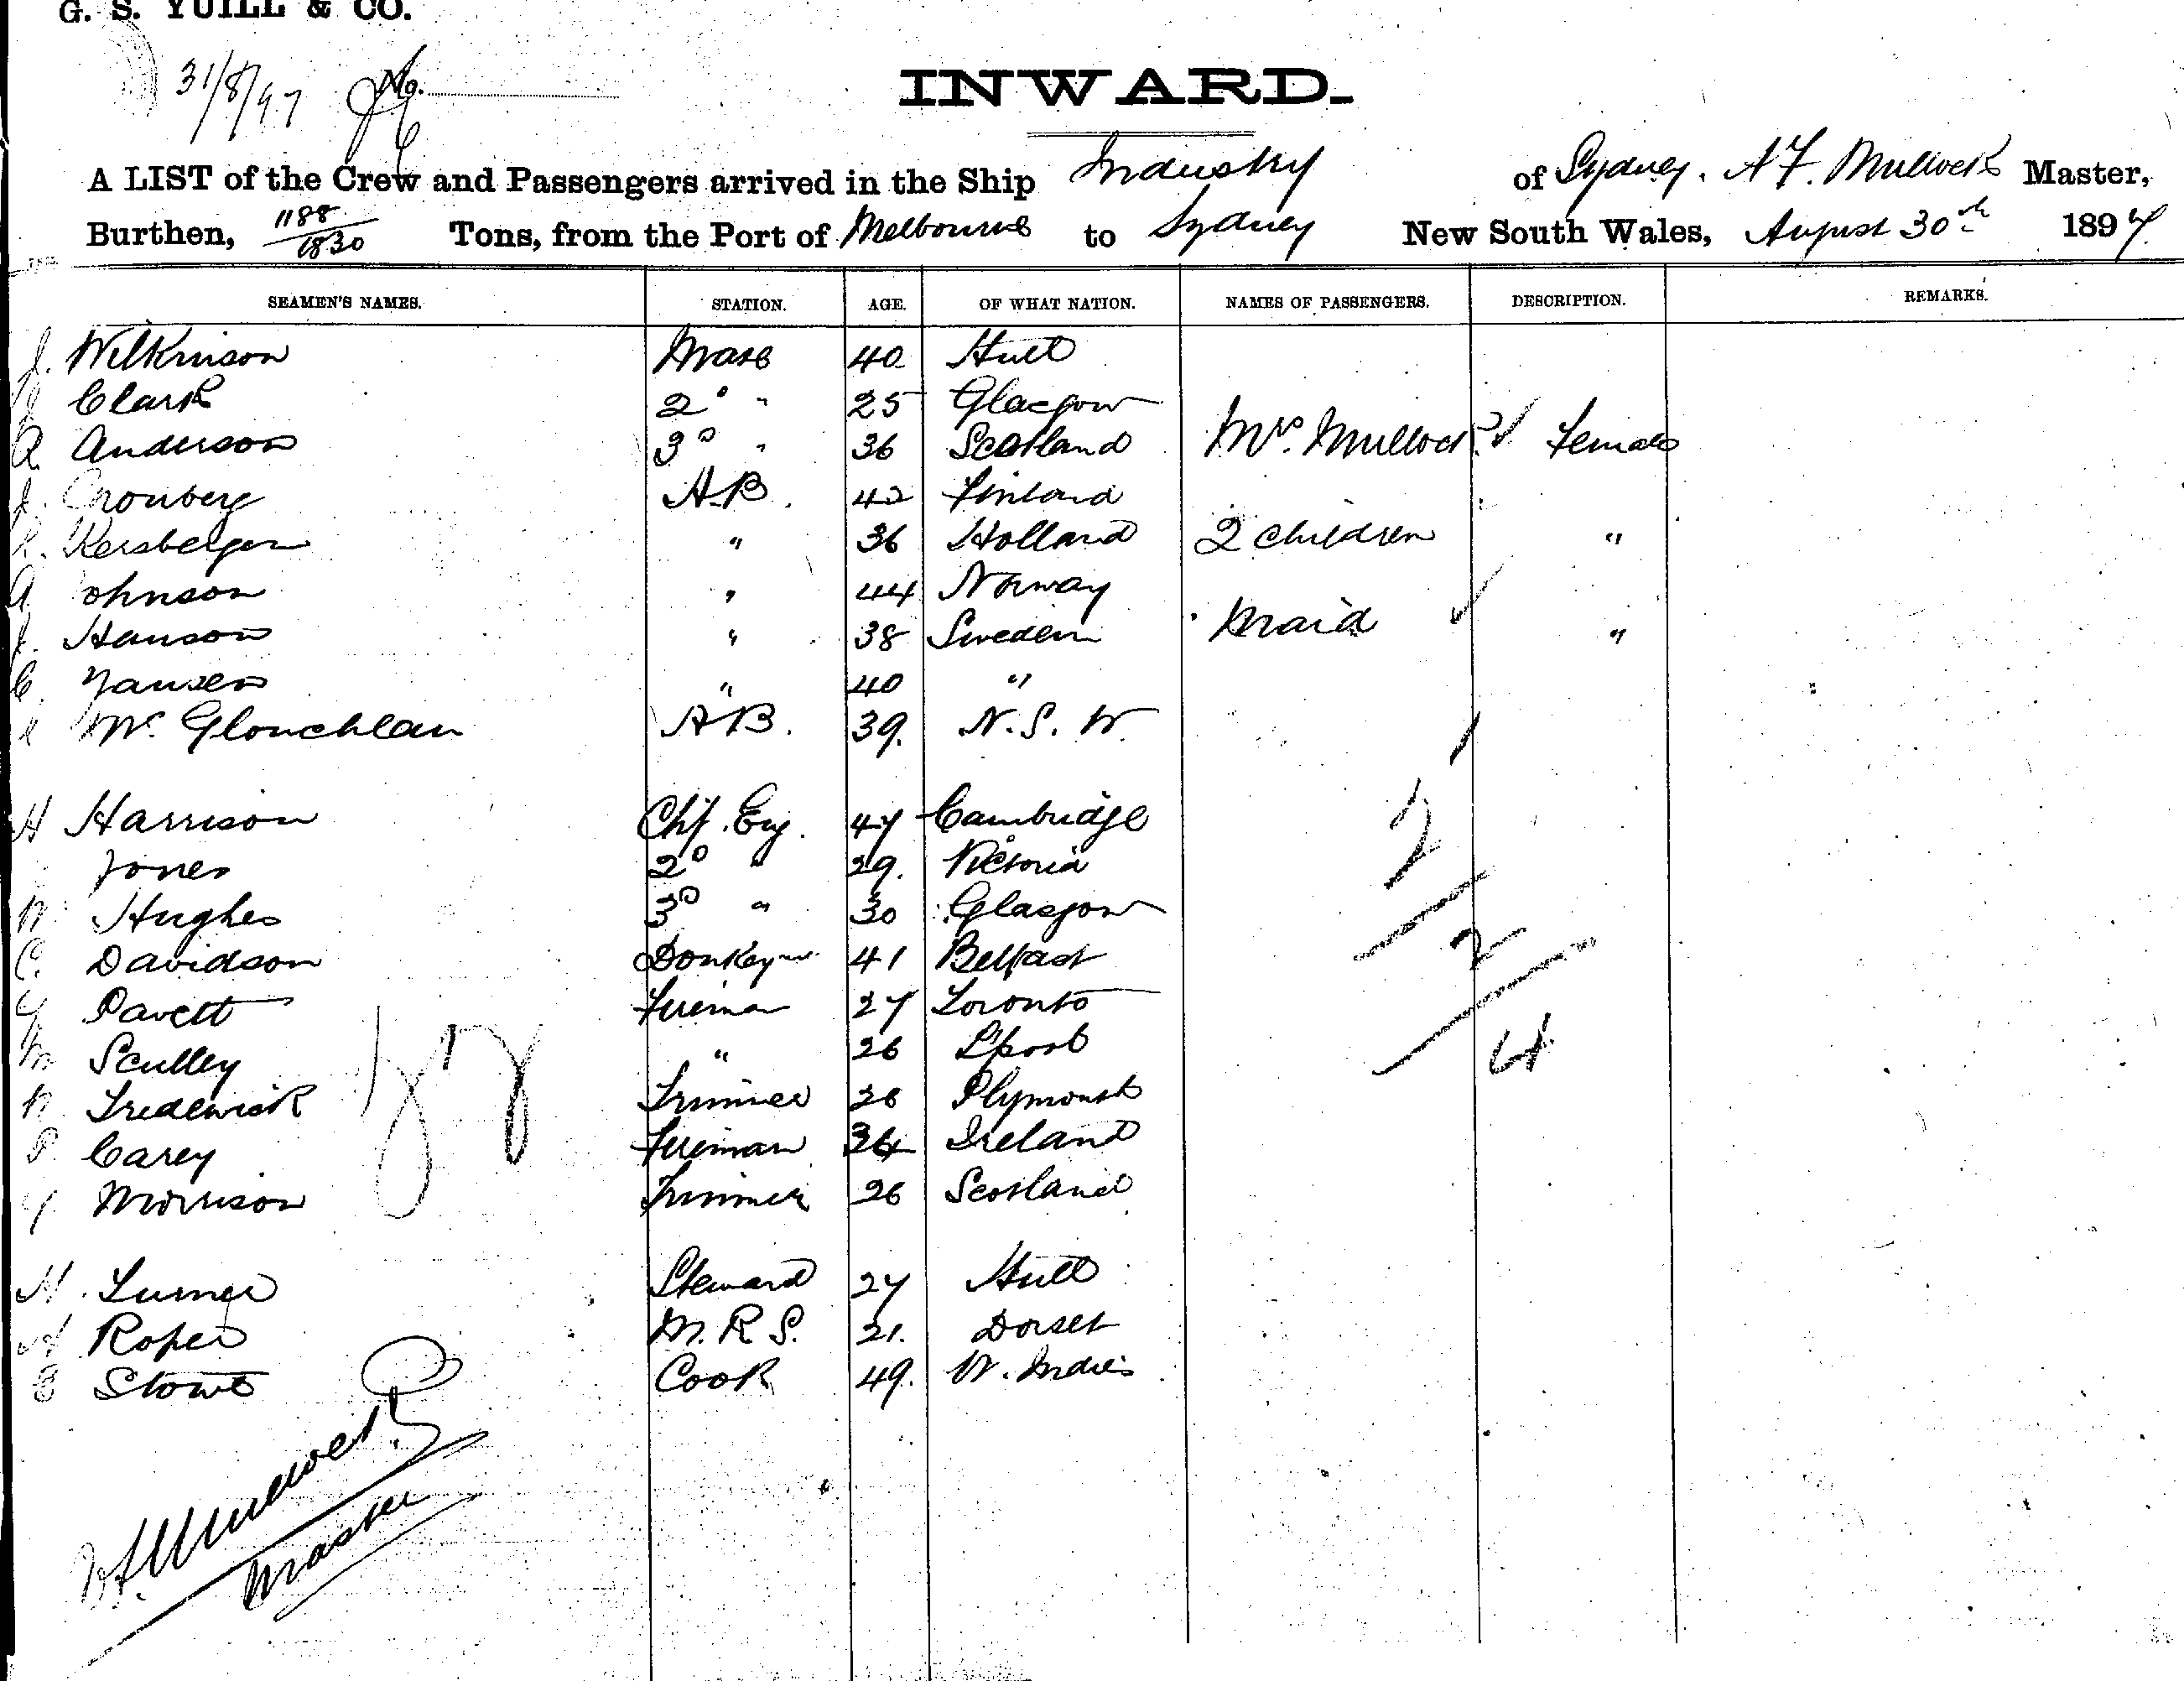 G. S. YUILL & CO.
31/8/97 No.
INWARD.
A LIST of the Crew and Passengers arrived in the Ship Industry of Sydney, A F. Mullock Master,
Burthen, 1188/1830 Tons, from the Port of Melbourne to Sydney New South Wales, August 30th 1897
SEAMEN'S NAMES. STATION. AGE. OF WHAT NATION. NAMES OF PASSENGERS. DESCRIPTION. REMARKS.
J. Wilkinson Mate 40 Hull
J Clark 2° " 25 Glasgow
A Anderson 3° " 36 Scotland Mrs. Mullock Female
J. Cronberg A.B. 42 Finland
Kersbergen " 36 Holland 2 children "
A ohnson " 44 Norway
J. Hanson " 38 Sweden Maid "
C Jansen " 40 "
Mc Glouchlan AB. 39. N.S.W.
H Harrison Chf. Eng. 47 Cambridge
Jones 2° " 29. Victoria
W Hughes 3° " 30 Glasgow
C. Davidson Donkeyn 41 Belfast
G Pavett Fireman 27 Toronto
M Sculley " 26 L'pool
W Trederick Trimmer 26 Plymouth
P Carey Fireman 34 Ireland
Morrison Trimmer 26 Scotland
H. Turner Steward 27 Hull
A Roper M.R.S. 21. Dorset
E Stowe Cook 49. W. Indies
1
2
2
4
Mullock
Master